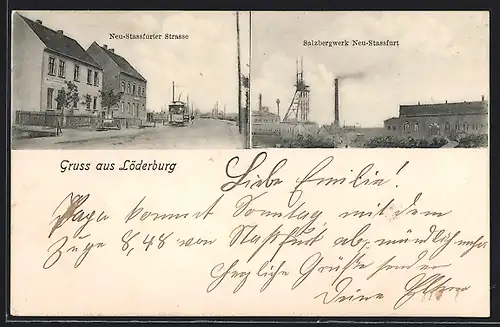 Neu-Stassfurter Strasse
Salzbergwerk Neu-Stassfurt
Gruss aus Löderburg
Liebe Emilie!
Papa kommt Sonntag mit dem
Zuge 8,48 von Staßfurt ab, mündlich mehr
Herzliche Grüße senden
Deine Eltern